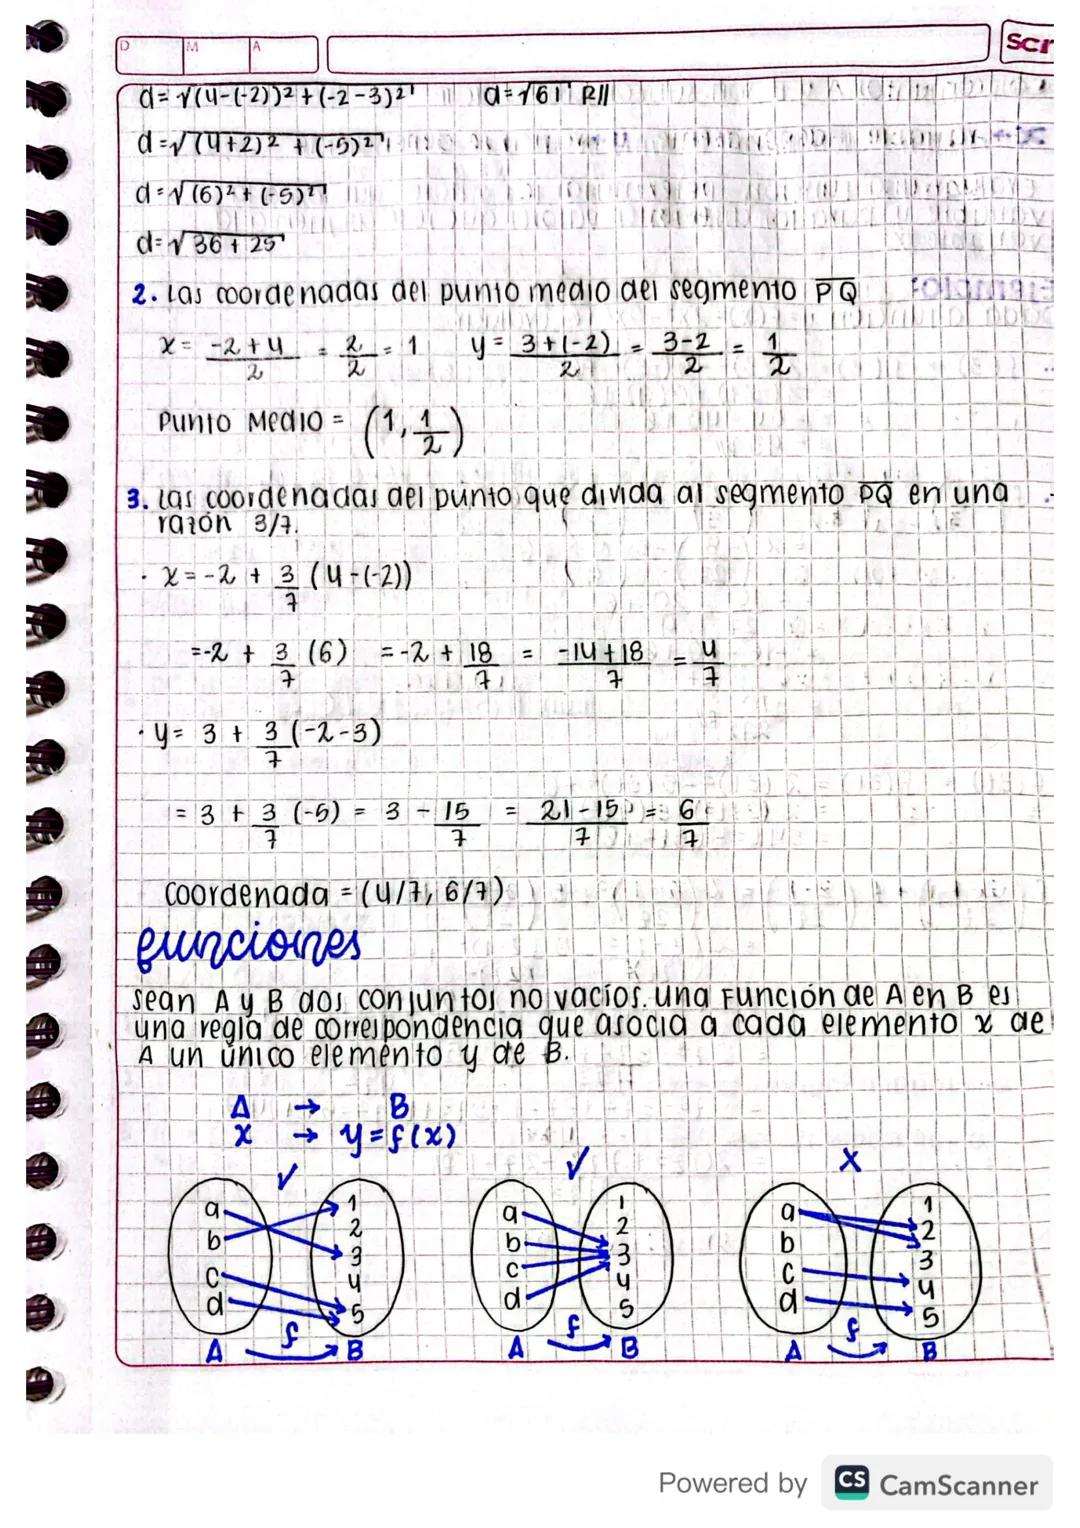 D M A
scr
d=√(4-(-2))²+(-2-3)² d=√61 R//
d=√(4+2)²+(-5)²
d=√(6)²+(-5)²
d=√36+25
2. Las coordenadas del punto medio del segmento P̅Q̅
x= -2+4/2 = 2/2 = 1 y= 3+(-2)/2 = 3-2/2 = 1/2
Punto Medio = (1, 1/2)
3. Las coordenadas del punto que divida al segmento P̅Q̅ en una
razón 3/7.
· x=-2 + 3/7 (4-(-2))
=-2 + 3/7 (6) =-2 + 18/7 = -14+18/7 = 4/7
· y= 3 + 3/7 (-2-3)
= 3 + 3/7 (-5) = 3 - 15/7 = 21-15/7 = 6/7
Coordenada = (4/7, 6/7)
funciones
Sean A y B dos conjuntos no vacíos. una Función de A en B es
una regla de correspondencia que asocia a cada elemento x de
A un único elemento y de B.
A → B
x → y=f(x)
✓ ✓ X
a 1 a 1 a 1
b 2 b 2 b 2
c 3 c 3 c 3
d 4 d 4 d 4
5 5 5
f f f
A B A B A B
Powered by CS CamScanner